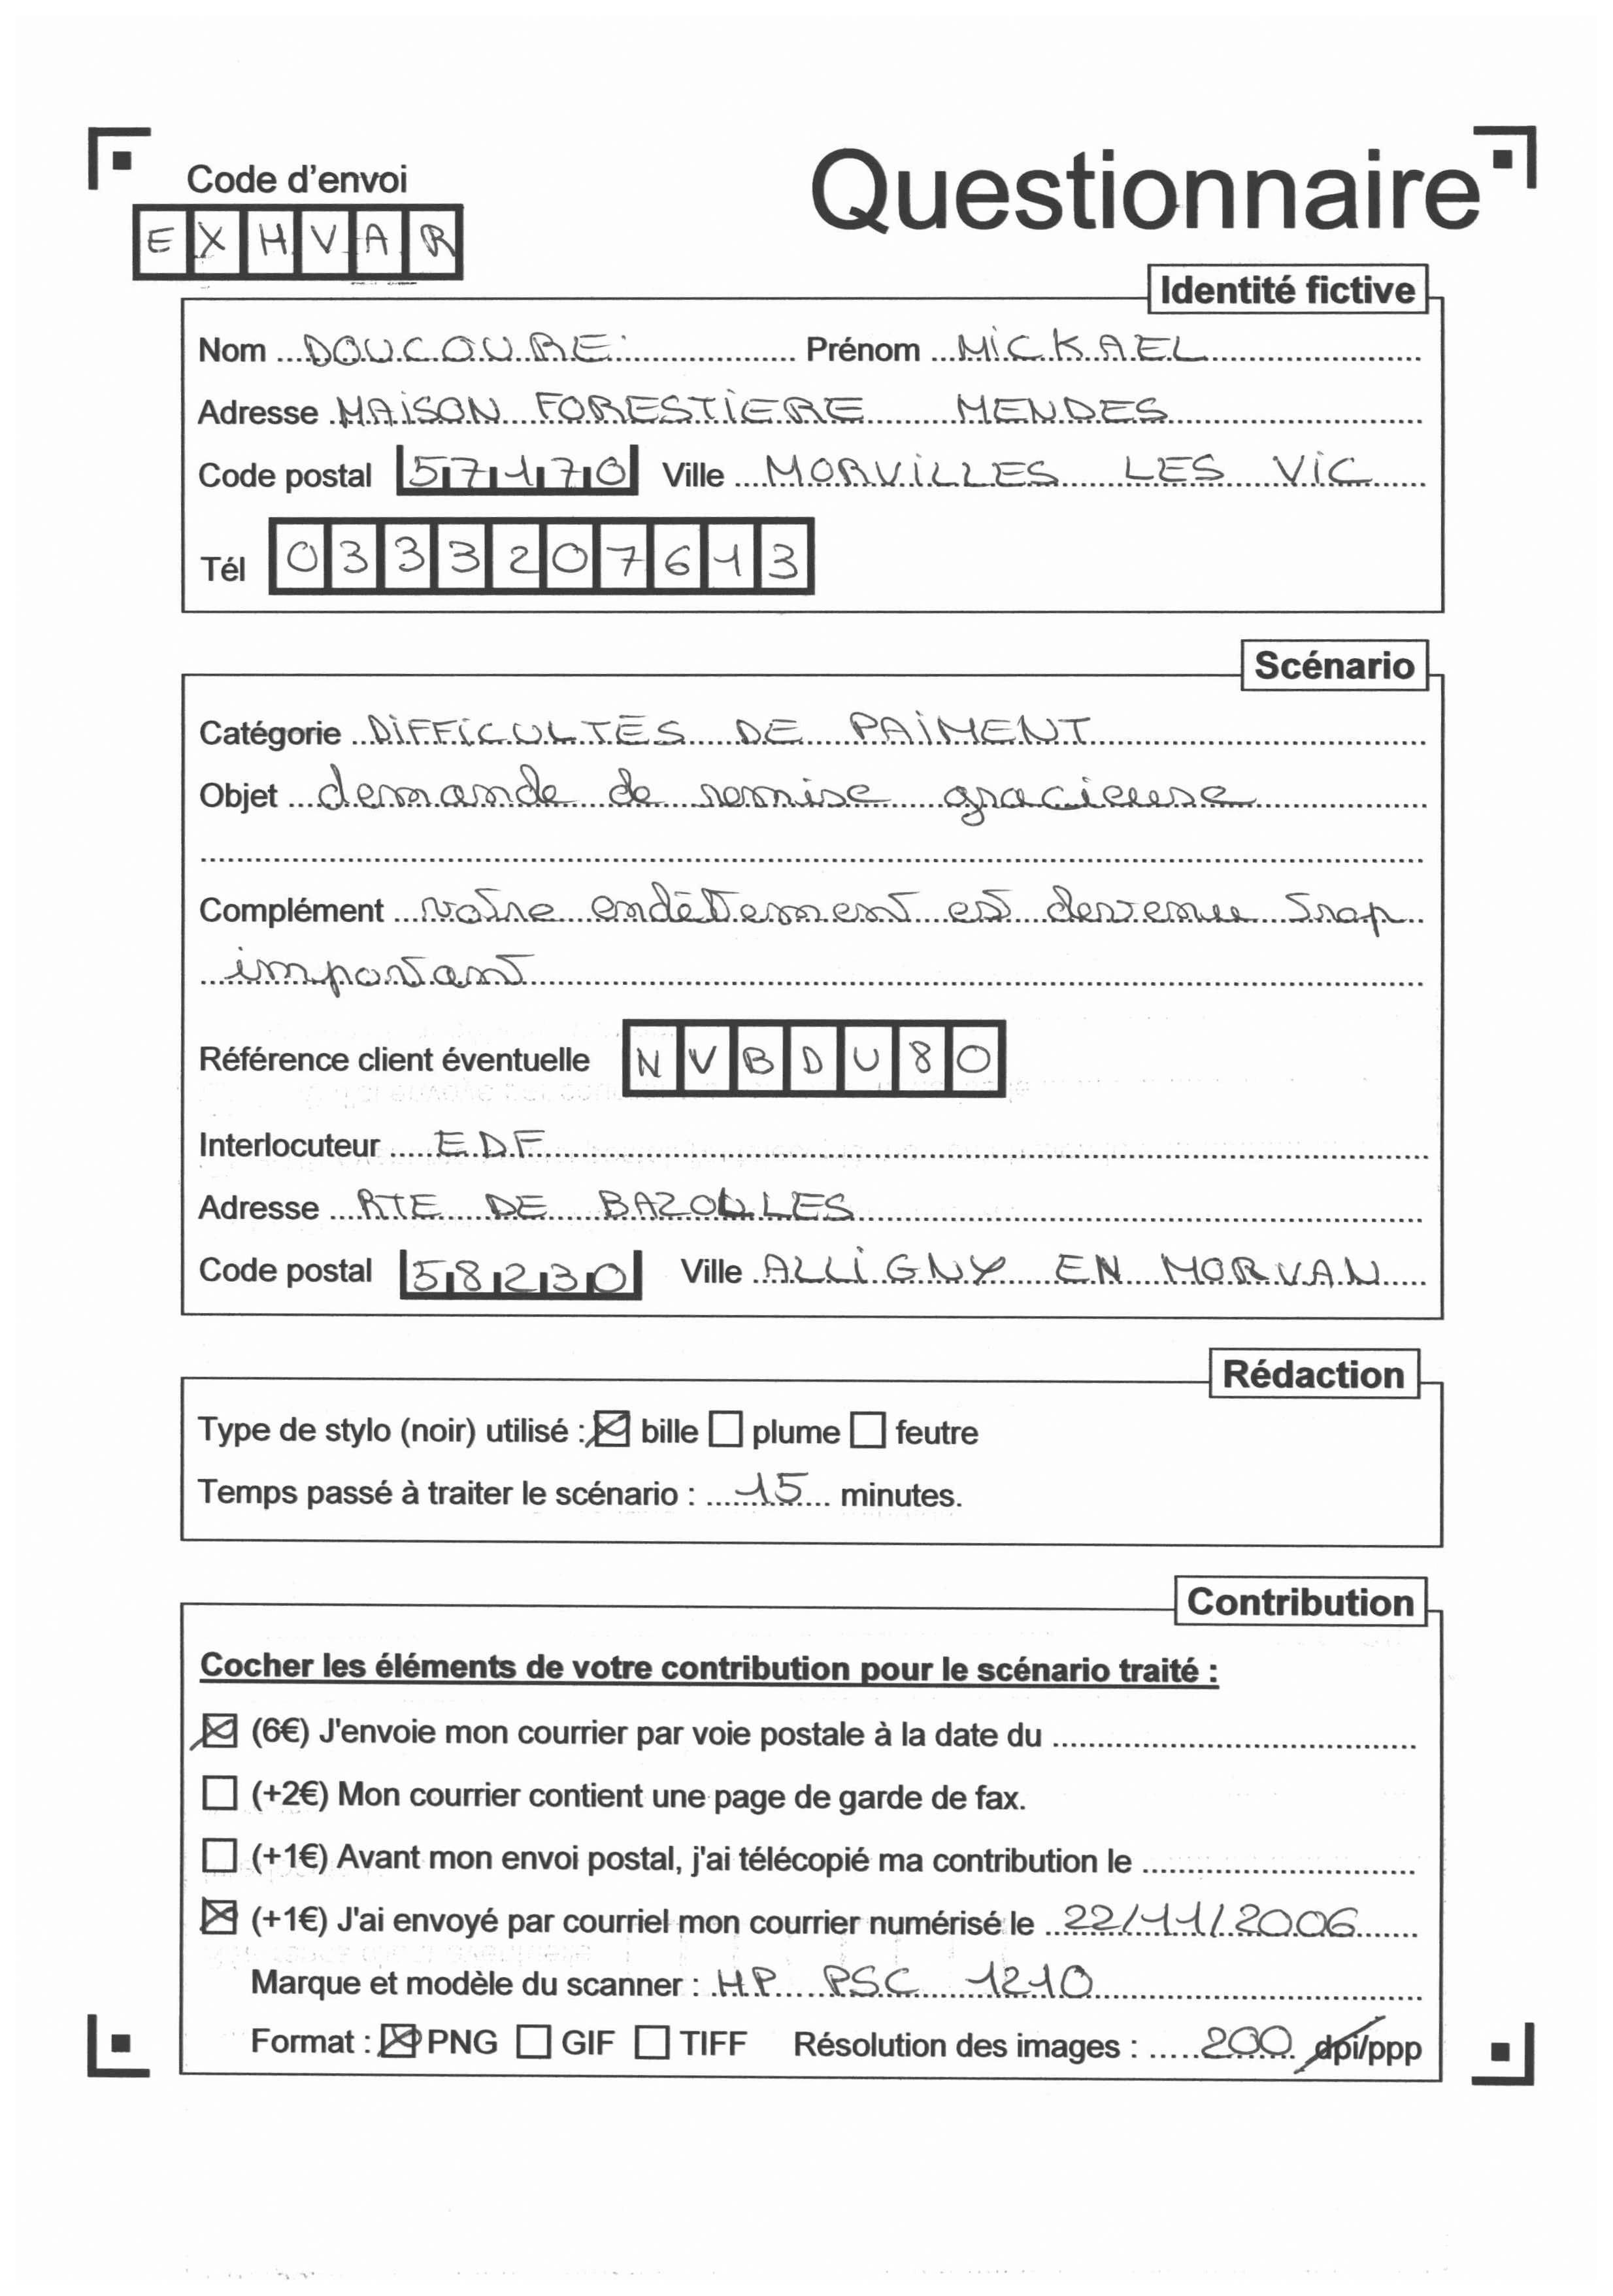 Code d'envoi
Questionnaire
EXHVAR
Identité fictive
Nom DOUCOURE Prénom MICKAEL
Adresse MAISON FORESTIERE MENDES
Code postal 57170 Ville MORVILLES LES VIC
Tél 0333207613
Scénario
Catégorie DIFFICULTÉS DE PAIMENT
Objet demande de remise gracieuse
Complément votre endéttement est devenue trop
important
Référence client éventuelle NVBDU80
Interlocuteur EDF
Adresse RTE DE BAZOLLES
Code postal 58230 Ville ALLIGNY EN MORVAN
Rédaction
Type de stylo (noir) utilisé : ☒ bille ☐ plume ☐ feutre
Temps passé à traiter le scénario : 15 minutes.
Contribution
Cocher les éléments de votre contribution pour le scénario traité :
☒ (6€) J'envoie mon courrier par voie postale à la date du
☐ (+2€) Mon courrier contient une page de garde de fax.
☐ (+1€) Avant mon envoi postal, j'ai télécopié ma contribution le
☒ (+1€) J'ai envoyé par courriel mon courrier numérisé le 22/11/2006
Marque et modèle du scanner : HP PSC 1210
Format : ☒ PNG ☐ GIF ☐ TIFF Résolution des images : 200 dpi/ppp